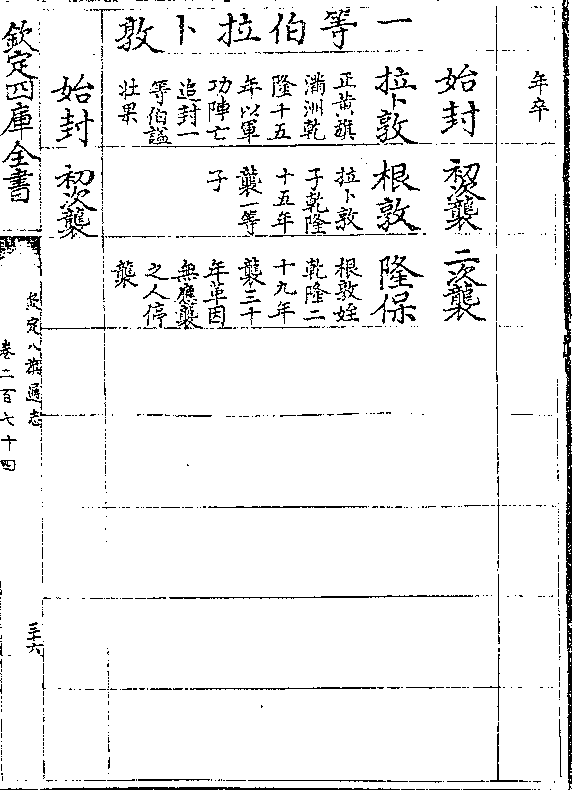 年卒
一等伯拉卜敦
始封
拉卜敦
正黃旗
滿洲乾
隆十五
年以軍
功陣亡
追封一
等伯諡
壯果
初次襲
根敦
拉卜敦
子乾隆
十五年
襲一等
子
二次襲
隆保
根敦姪
乾隆二
十九年
襲三十
年革因
無應襲
之人停
襲
始封
初次襲
欽定四庫全書
欽定八旗通志
卷二百七十四
三十六